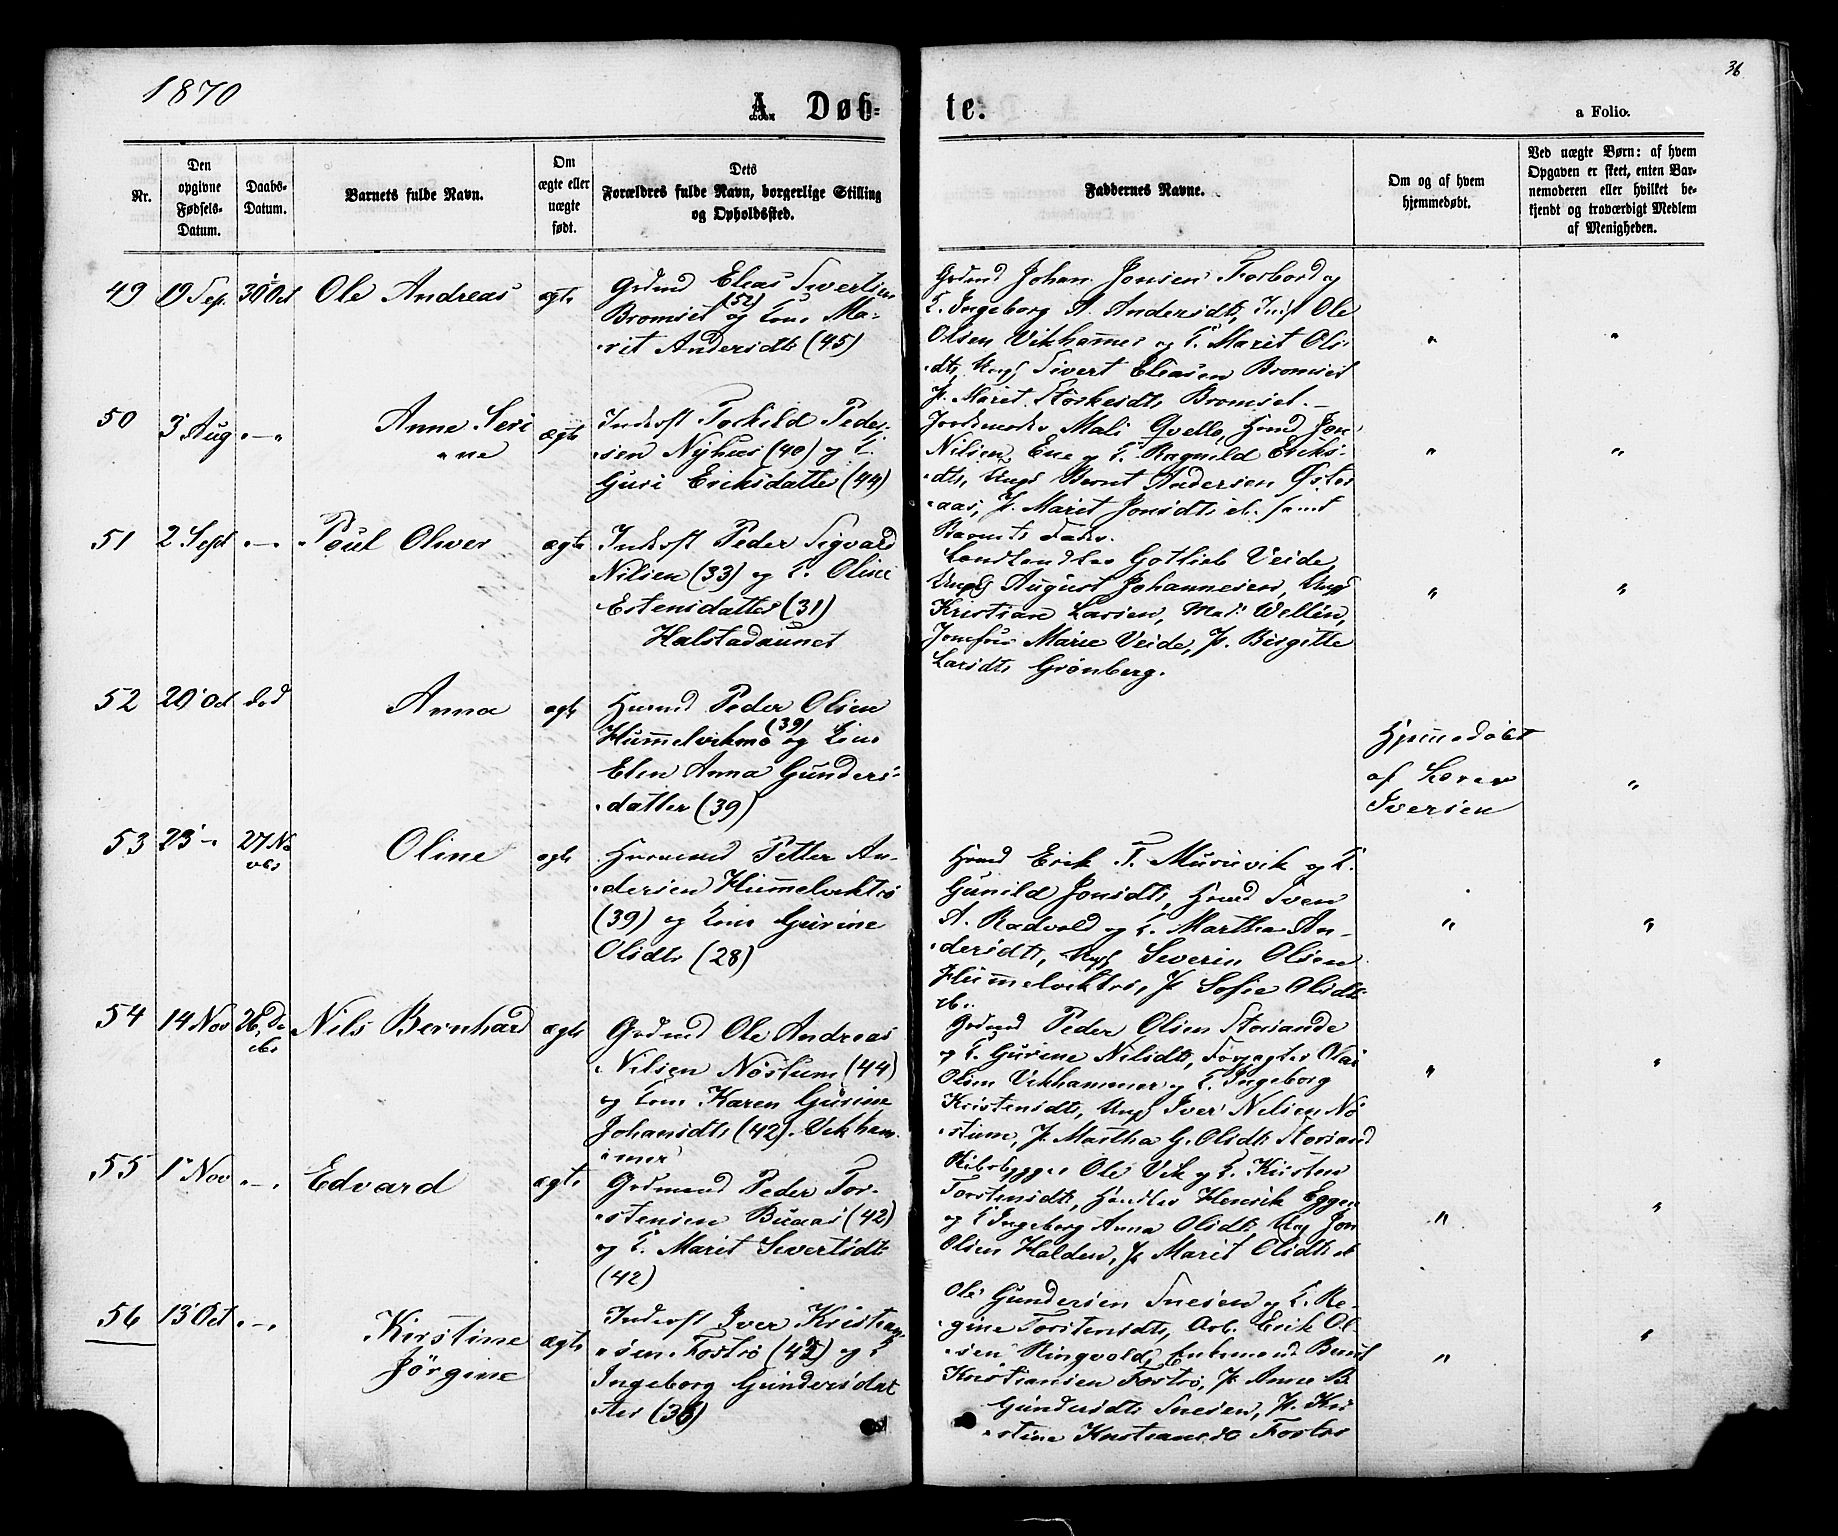 1870
36
A. Døb-
te.
a Folio.
Nr.
Den
opgivne
Fødsels-
Datum.
Daabs-
Datum.
Barnets fulde Navn.
Om
ægte eller
uægte
født.
Dets
Forældres fulde Navn, borgerlige Stilling
og Opholdssted.
Faddernes Navne.
Om og af hvem
hjemmedøbt.
Ved uægte Børn: af hvem
Opgaven er skeet, enten Bar-
nemoderen eller hvilket be-
kjendt og troværdigt Medlem
af Menigheden.
49 19 Sep. 30 Oct Ole Andreas ægte
Grdmd Elias Sivertsen
Bromset (52) og Kone Ma-
rit Andersdtr (45)
Grdmd Johan Jonsen Forbord og
K. Ingeborg A. Andersdtr, Inst Ole
Olsen Vikhammer og K. Marit Ols-
dtr, Ungk Sivert Eliasen Bromset
P. Marit Storkersdtr Bromset. —
50 3 Aug. „ — „ Anne Seri
ne ægte
Inderst Torkild Peder-
sen Nyhus (40) og K.
Guri Eriksdatter (44)
Jordemoder Mali Qvello, Hmd Jon
Nilsen Ene og K. Ragnild Eriks-
dtr, Ungk Bernt Andersen Øster
aas, P. Marit Jonsdtr ib. samt
Barnets Fader.
51 2 Sept „ — „ Poul Oliver ægte
Inderst Peder Sigvard
Nilsen (33) og K. Oline
Estensdatter (31)
Halstadaunet
Landhandler Gotlieb Veide,
Ungk August Johannesen, Ungk
Kristian Larsen, Mad. Wellén,
Jomfru Marie Veide, P. Birgitte
Larsdtr Grønberg.
52 20 Oct død Anna ægte
Husmd Peder Olsen
Hummelvikmo (39) og Kone
Elen Anna Gunders-
datter (39)
Hjemmedøbt
af Søren
Iversen
53 23 — 27 No
vbr Oline ægte
Husmand Petter An-
dersen Hummelviktrø
(39) og Kone Gurine
Olsdtr (28)
Hmd Erik T. Muruvik og K.
Gunild Jonsdtr, Hmd Sven
A. Rødvold og K. Martha An-
dersdtr, Ungk Severin Olsen
Hummelviktrø, P Sofie Olsdtr
ib.
54 14 Nov 26 De
cbr Nils Bernhard ægte
Grdmd Ole Andreas
Nilsen Nøstum (44)
og Kone Karen Gurine
Johansdtr (42). Vikham
mer
Grdmd Peder Olsen Storsande
og K. Gurine Nilsdtr, Forpagter Olai
Olsen Vikhammer og K. Ingeborg
Kristensdtr, Ungk Iver Nilsen Nø
stum, P. Martha G. Olsdtr Storsand
55 1 Nov „ — „ Edvard ægte
Grdmand Peder Tor-
stensen Buaas (42)
og K. Marit Sivertsdtr
(42)
Skibsbygger Ole Vik og K. Kirsten
Torstensdtr, Handler Henrik Eggen
og K Ingeborg Anna Olsdtr Ung Jon
Olsen Halden, P. Marit Olsdtr ib
56 13 Oct „ — „ Kirstine
Jörgine ægte
Inderst Iver Kristian
sen Fostrø (43) og K
Ingeborg Gundersdat
ter (36)
Ole Gundersen Snesen og K. Re-
gine Torstensdtr, Arb. Erik Ol-
sen Ringvold, Enkemand Bernt
Kristiansen Fostrø, P. Anne B.
Gundersdtr Snesen, P. Kri
stine Kristiansdtr Fostrø